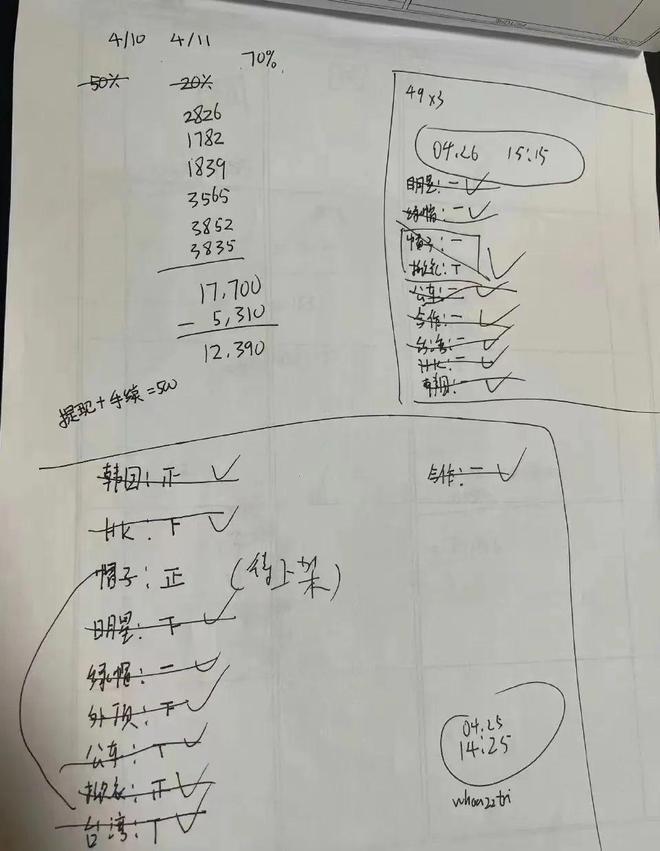 4/10 4/11
70%
50% 20%
2826
1782
1839
3565
3852
3835
17,700
- 5,310
12,390
提现+手续=500
49×3
04.26 15:15
明星:一 ✓
绿帽:一 ✓
帽子:一
T ✓
公车:一 ✓
合作:一 ✓
台湾:一 ✓
HK:一 ✓
韩国:一 ✓
韩国:正 ✓
合作:一 ✓
HK:F ✓
帽子:正 (待上架)
明星:下 ✓
绿帽:一 ✓
外项:下 ✓
公车:T ✓
正 ✓
台湾:T ✓
04.25
14:25